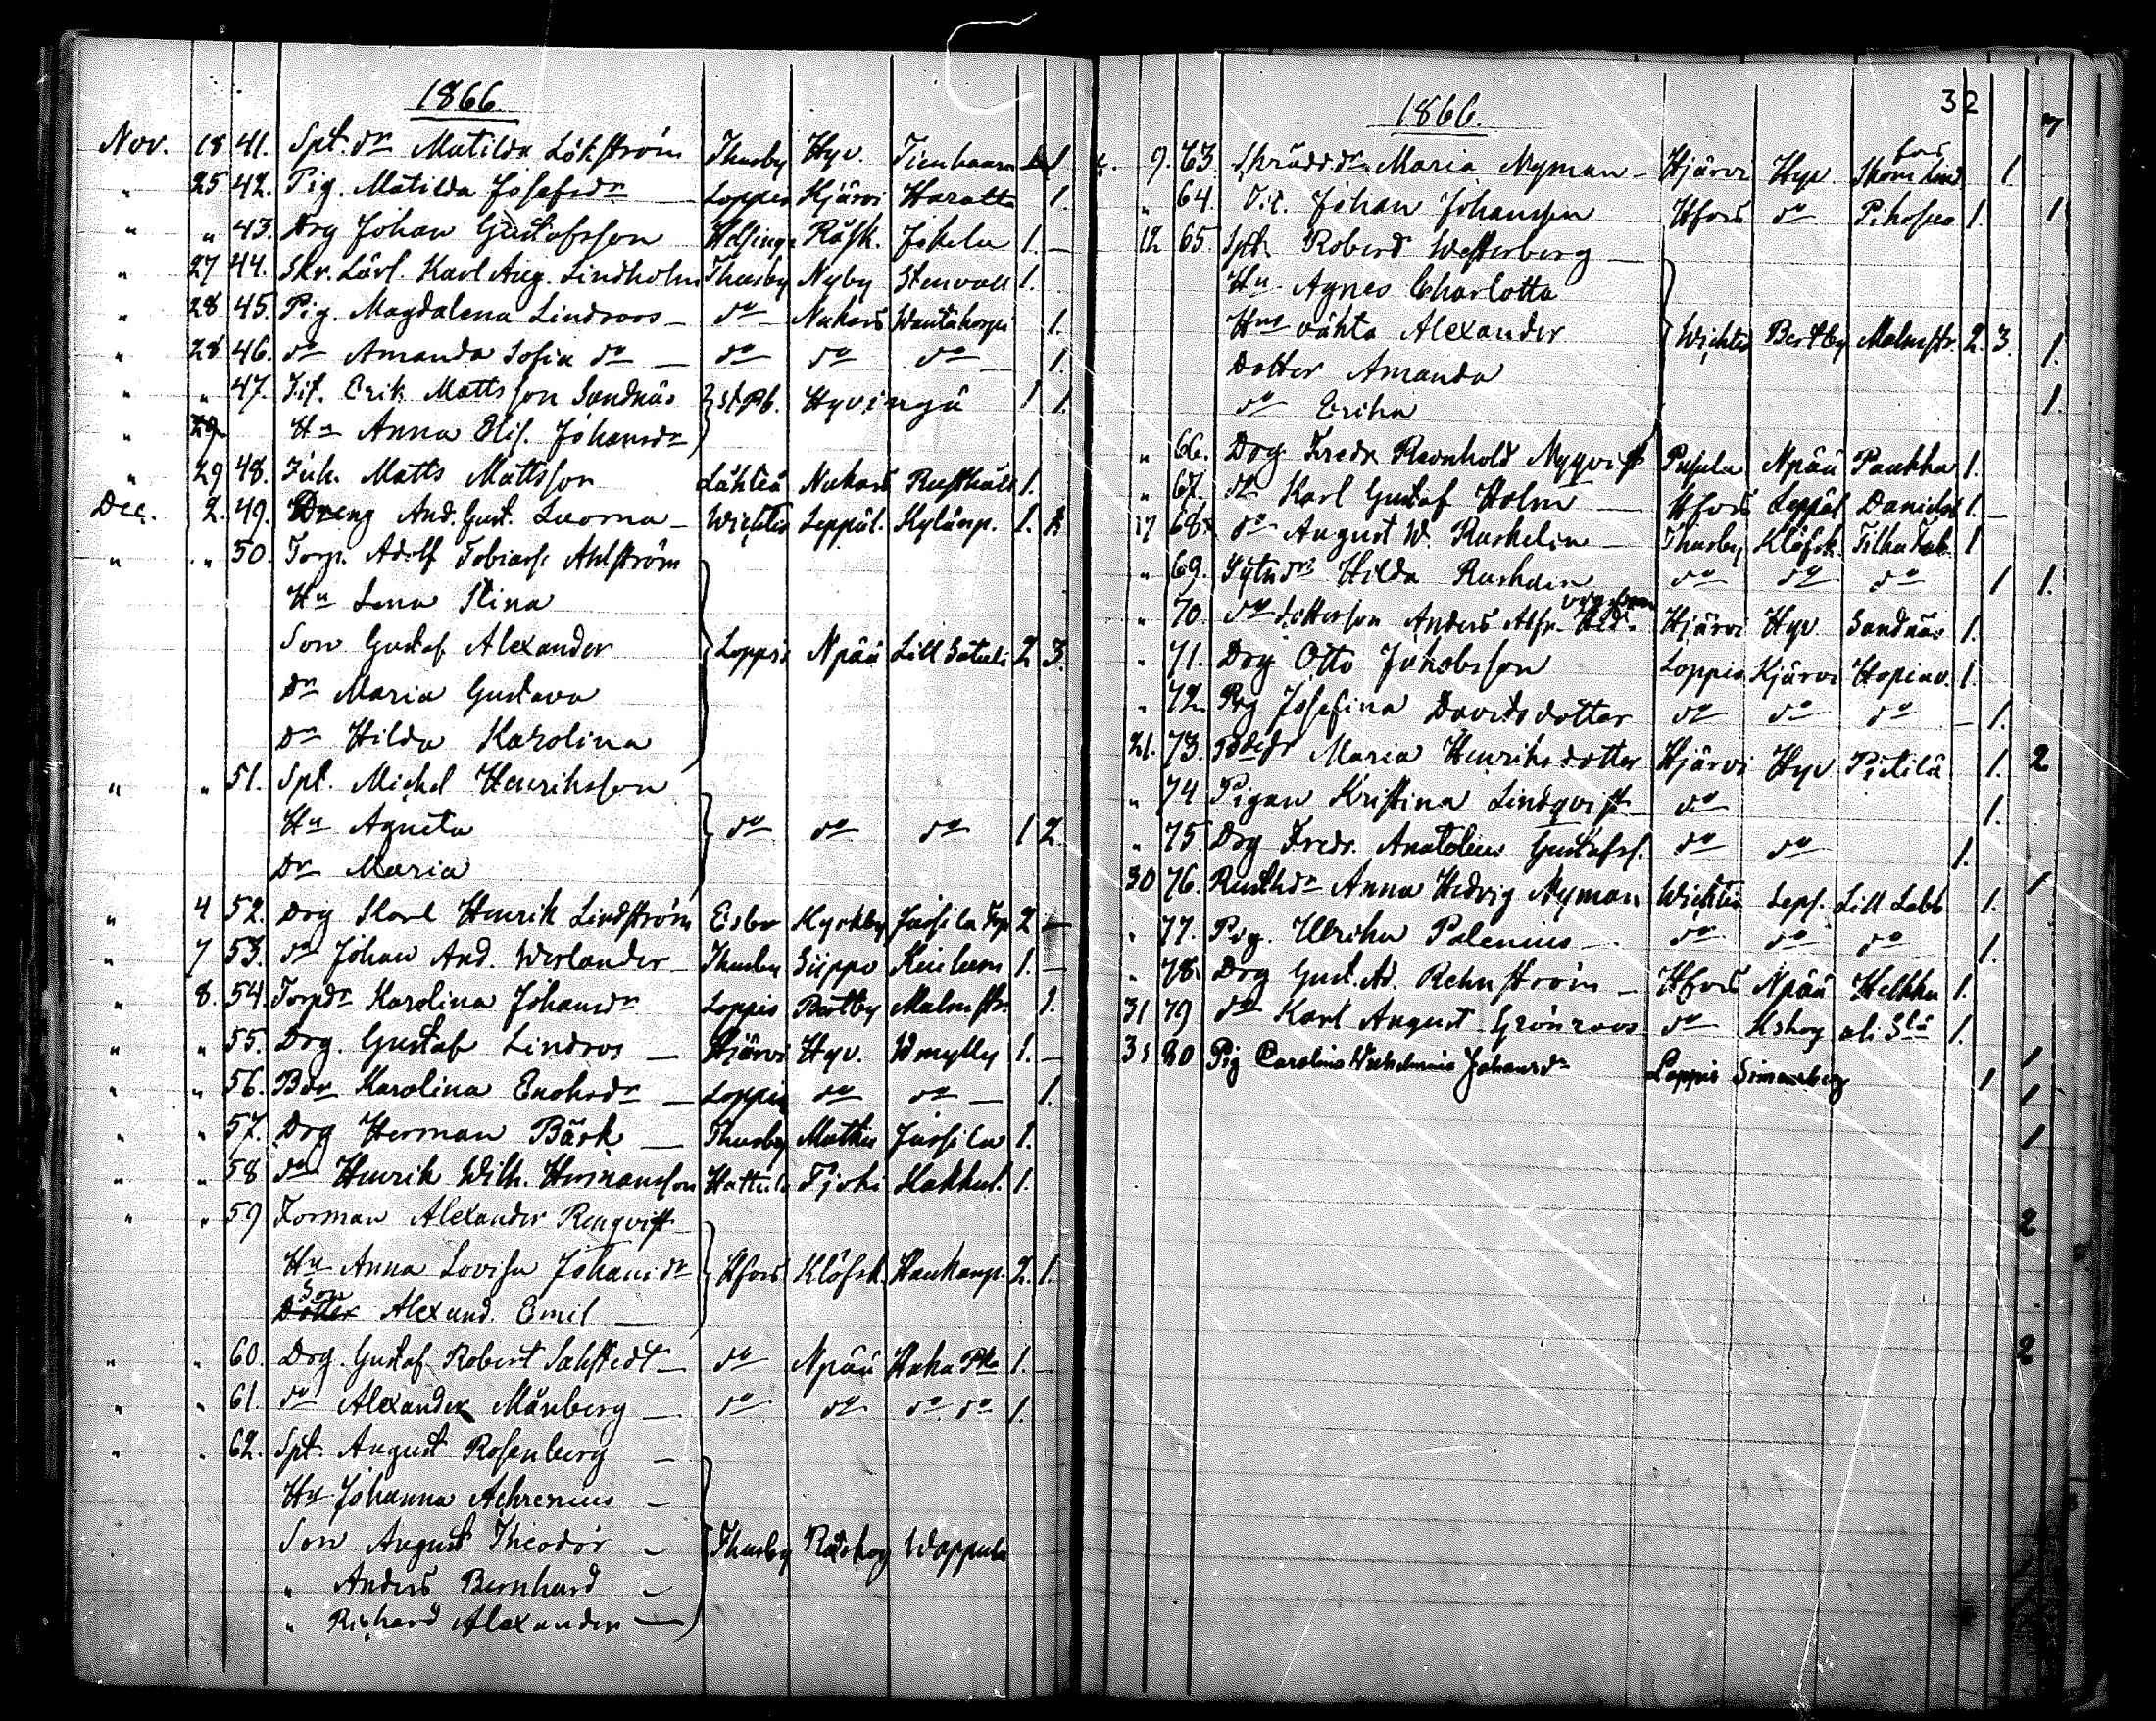 1866
Nov. 18 41. Spt. dr Matilda Lökström Thusby Hyv. Tienhaara 1
" 25 42. Pig. Matilda Josefsdr Loppis Hjärvi Haratta 1.
" " 43. Drg Johan Gustafsson Helsinge Råsk. Jokela 1. —
" 27 44. Skr. Lärl. Karl Aug. Lindholm Thusby Nyby Stenvall 1.
" 28 45. Pig. Magdalena Lindroos — do Nukars Wantakorpi 1.
" 28 46. do Amanda Sofia do — do do do — 1.
" " 47. Erik Mattsson Sandnäs St. Pb. Hyvingä 1 1.
" 29 Hu Anna Elis. Johansdr
" 29 48. Inh. Matts Mattsson Lähteä Nukars Rusthåll 1.
Dec. 2. 49. Dreng And. Gust. Luoma — Wichtis Leppäl. Kylänp. 1.
" " 50. Torp. Adolf Tobiass. Ahlström
Hu Lena Stina
Son Gustaf Alexander Loppis Npää Lill Sätuli 2 3.
Dr Maria Gustava
Dr Hilda Karolina
" " 51. Spt. Michel Henriksson
Hu Agneta do do do 1 2.
Dr Maria
" 4 52. Drg Karl Henrik Lindström Esbo Kyrkby Jussila Trp 2 —
" 7 53. do Johan And. Werlander Thusby Siippo 1. —
" 8. 54. Torpdr Karolina Johansdr Loppis Bertby Malmstr. 1.
" " 55. Drg. Gustaf Lindros — Hjärvi Hyv. Wmylly 1. —
" " 56. Karolina Enoksdr — Loppis do do — 1.
" " 57. Drg Herman Bäck — Thusby Mathis Jussila 1.
" " 58 do Henrik Wilh. Hermansson Hattula Tjoki Kakkul. 1.
" " 59 Forman Alexander Renqvist
Hu Anna Lovisa Johansdr Hfors Klöfsk. Haukanp. 2. 1.
Son
Dotter Alexand. Emil —
" " 60. Drg. Gustaf Robert Sahlstedt — do Npää Haka 1. —
" " 61. do Alexander Månberg — do do do do 1.
" " 62. Spt. August Rosenberg —
Hu Johanna Achrenius —
Son August Theodor — Thusby Rödskog Wappula
" Anders Bernhard —
" Richard Alexander —
32
1866.
9. 63. Skrädddr. Maria Nyman — Hjärvi Hyv. 1.
" 64. Johan Johansson Hfors do 1.
12 65. Spt. Robert Westerberg —
Hu Agnes Charlotta
Hus Alexander Wichtis Bertby Malmstr. 2. 3.
Dotter Amanda
do Erika
" 66. Drg Fredr Reinhold Nyqvist Pusula Npää Paukku 1.
" 67. do Karl Gustaf Holm — Hfors Leppäl Daniels 1. —
17 68. do August W. Ruskelin — Thusby Klöfsk. Tilku 1
" 69. Hilda do do do 1
" 70. do Anders Alfr. Hjärvi Hyv Sandnäs 1.
" 71. Drg Otto Jakobsson Loppis Kjärvi 1.
" 72. Pig Josefina Davidsdotter do do do — 1.
21. 73. Maria Henriksdotter Hjärvi Hyv Pietilä 1.
" 74 Pigan Kristina Lindqvist do 1.
" 75. Drg Fredr. Anatolius Gustafss. do do 1.
30 76. Rusthdr Anna Hedvig Nyman Wichtis Leps. Lill Labb 1.
" 77. Pig. Ulrika Palenius — do do do 1.
" 78. Drg Gust. Ad. Rehnström — Hfors Npää Helkku 1.
31 79 do Karl August Grönroos do Kskog 1.
31 80 Pig Carolina Wilhelmina Johansdr Loppis Simonberg 1